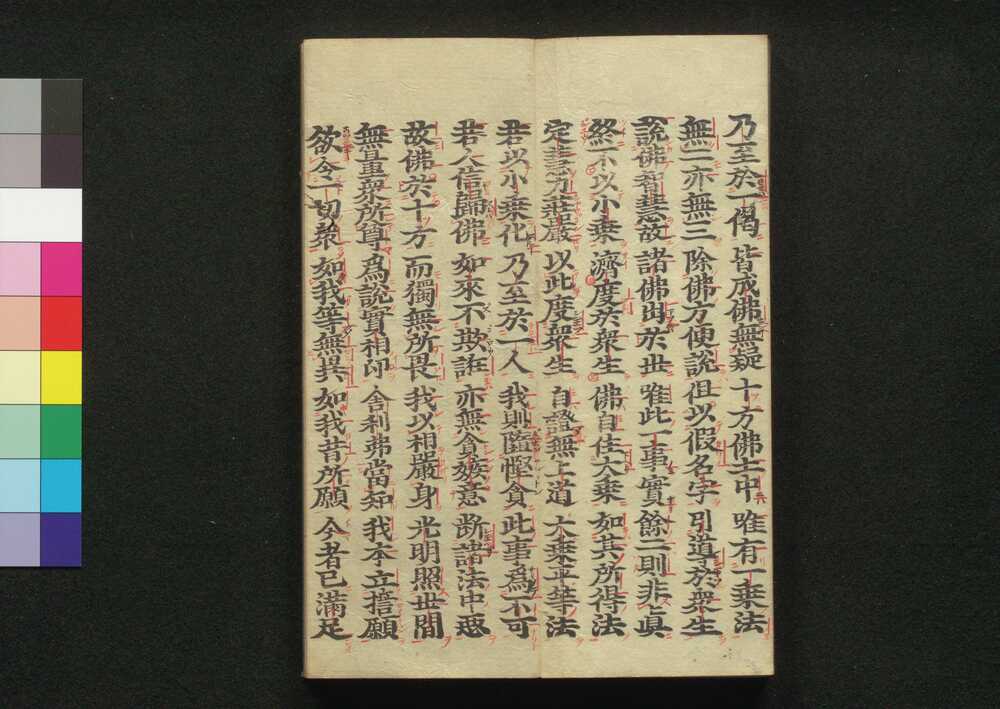 乃至於一偈 皆成佛無疑 十方佛土中 唯有一乗法
無二亦無三 除佛方便説 但以假名字 引導於衆生
説佛智慧故 諸佛出於世 唯此一事實 餘二則非眞
終不以小乗 濟度於衆生 佛自住大乗 如其所得法
定慧力莊嚴 以此度衆生 自證無上道 大乗平等法
若以小乗化 乃至於一人 我則隨慳貪 此事爲不可
若人信歸佛 如來不欺誑 亦無貪嫉意 断諸法中惡
故佛於十方 而獨無所畏 我以相嚴身 光明照世間
無量衆所尊 爲説實相印 舎利弗當知 我本立誓願
欲令一切衆 如我等無異 如我昔所願 今者已滿足